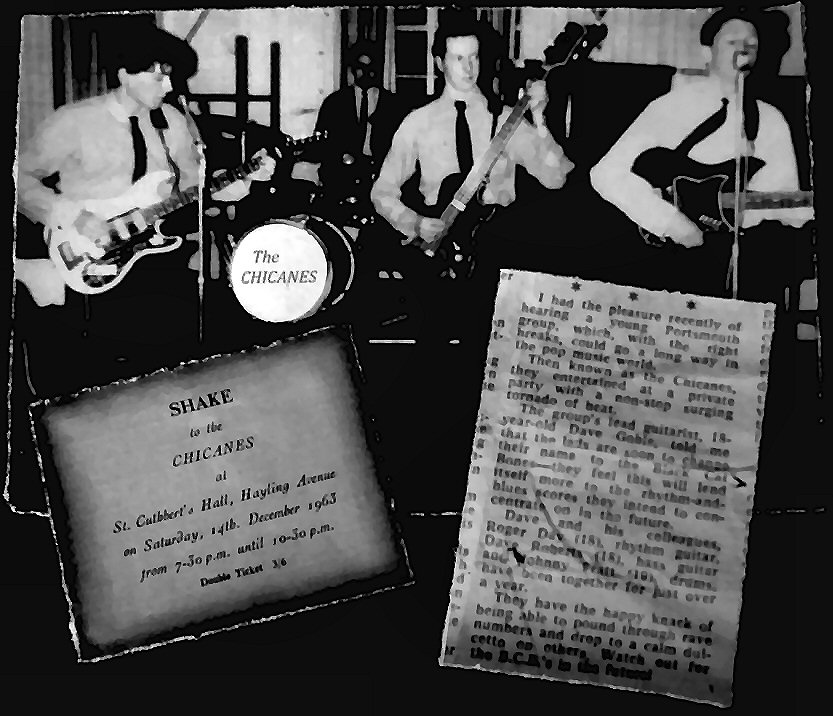 The
CHICANES
SHAKE
to the
CHICANES
at
St. Cuthbert's Hall, Hayling Avenue
on Saturday, 14th. December 1963
from 7-30 p.m. until 10-30 p.m.
Double Ticket 3/6
I had the pleasure recently of
hearing a young Portsmouth
group, which with the right
breaks, could go a long way in
the pop music world.
Then known as the Chicanes,
they entertained at a private
party with a non-stop surging
tornado of beat.
The group's lead guitarist, 18-
year-old Dave told me
that the lads are soon to change
their name to the Black Cat
Bones—they feel this will lend
itself more to the rhythm-and-
blues scores they intend to con-
centrate on in the future.
Dave and his colleagues,
Roger (18), rhythm guitar,
Dave Roberts (18), bass guitar
and Johnny drums,
have been together for just over
a year.
They have the happy knack of
being able to pound through rave
numbers and drop to a calm dul-
cetto on others. Watch out for
the B.C.B.'s in the future!